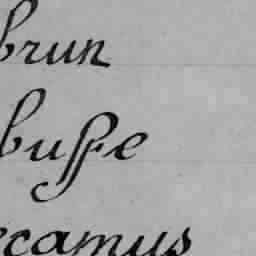 brun
busse
ecamus